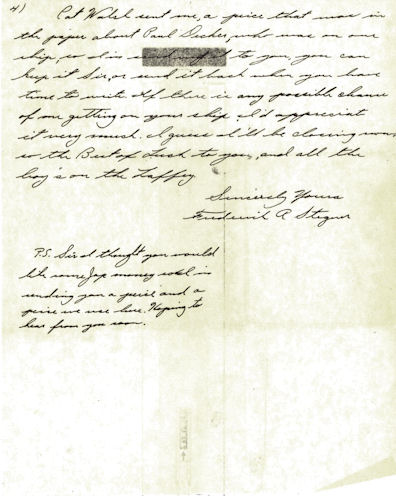 4)
Pat Walsh sent me, a peice that was in
the paper about Paul Decker, who was on our
ship, so I'm to you, you can
keep it Sir, or send it back when you have
time to write. If there is any possible chance
of me getting on your ship I'd appreciat
it very much. I guess I'll be closing now,
so the Best of Luck to you, and all the
boy's on the Laffey
Sincerely Yours
Frederick A
P.S. Sir I thought you would
like some Jap money so I'm
sending you a peice and a
peice we use here. Hoping to
hear from you soon.